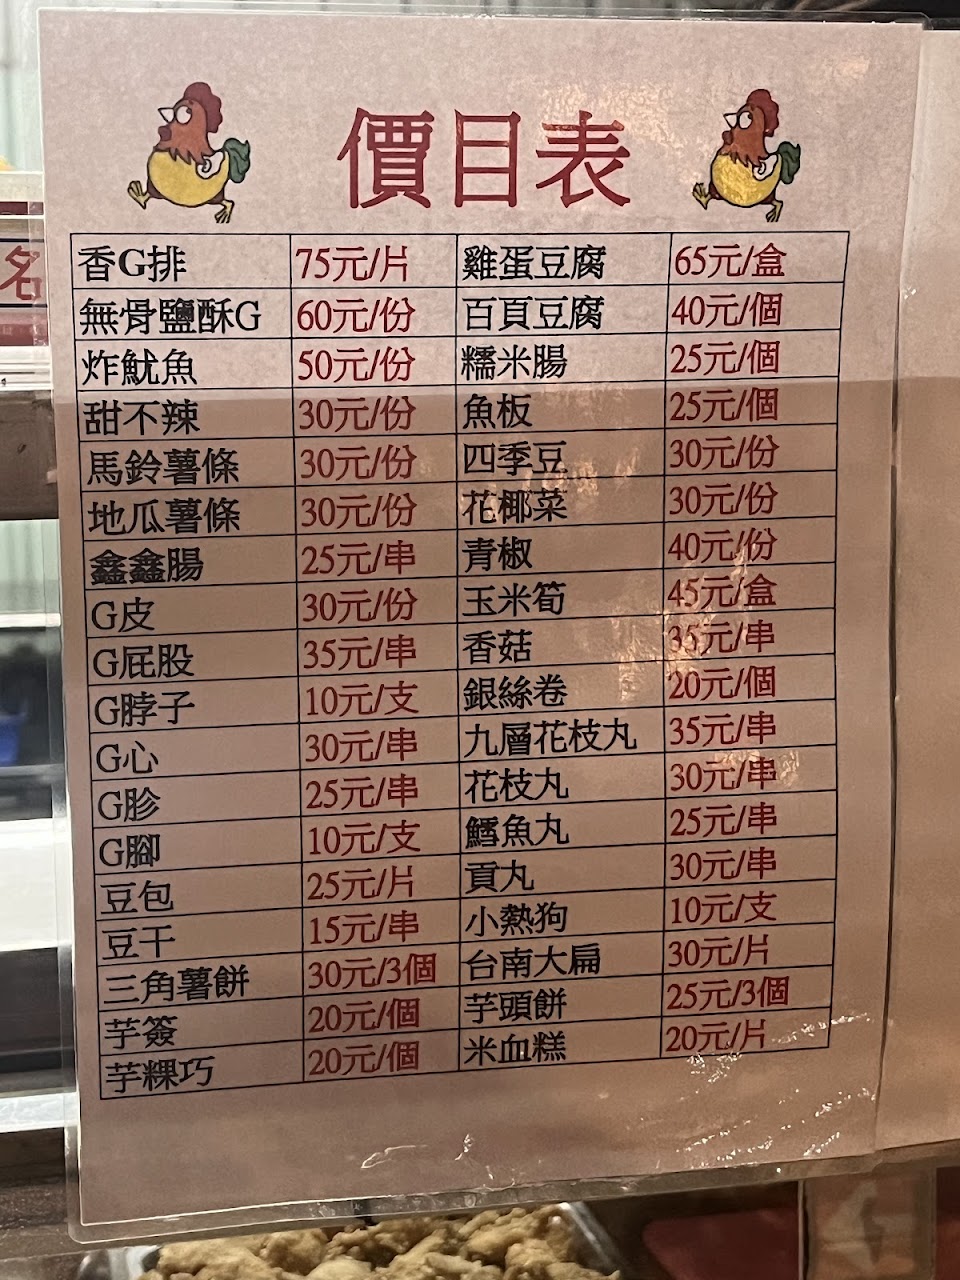 價目表
香G排 75元/片 雞蛋豆腐 65元/盒
無骨鹽酥G 60元/份 百頁豆腐 40元/個
炸魷魚 50元/份 糯米腸 25元/個
甜不辣 30元/份 魚板 25元/個
馬鈴薯條 30元/份 四季豆 30元/份
地瓜薯條 30元/份 花椰菜 30元/份
鑫鑫腸 25元/串 青椒 40元/份
G皮 30元/份 玉米筍 45元/盒
G屁股 35元/串 香菇 35元/串
G脖子 10元/支 銀絲卷 20元/個
G心 30元/串 九層花枝丸 35元/串
G胗 25元/串 花枝丸 30元/串
G腳 10元/支 鱈魚丸 25元/串
豆包 25元/片 貢丸 30元/串
豆干 15元/串 小熱狗 10元/支
三角薯餅 30元/3個 台南大扁 30元/片
芋簽 20元/個 芋頭餅 25元/3個
芋粿巧 20元/個 米血糕 20元/片
名